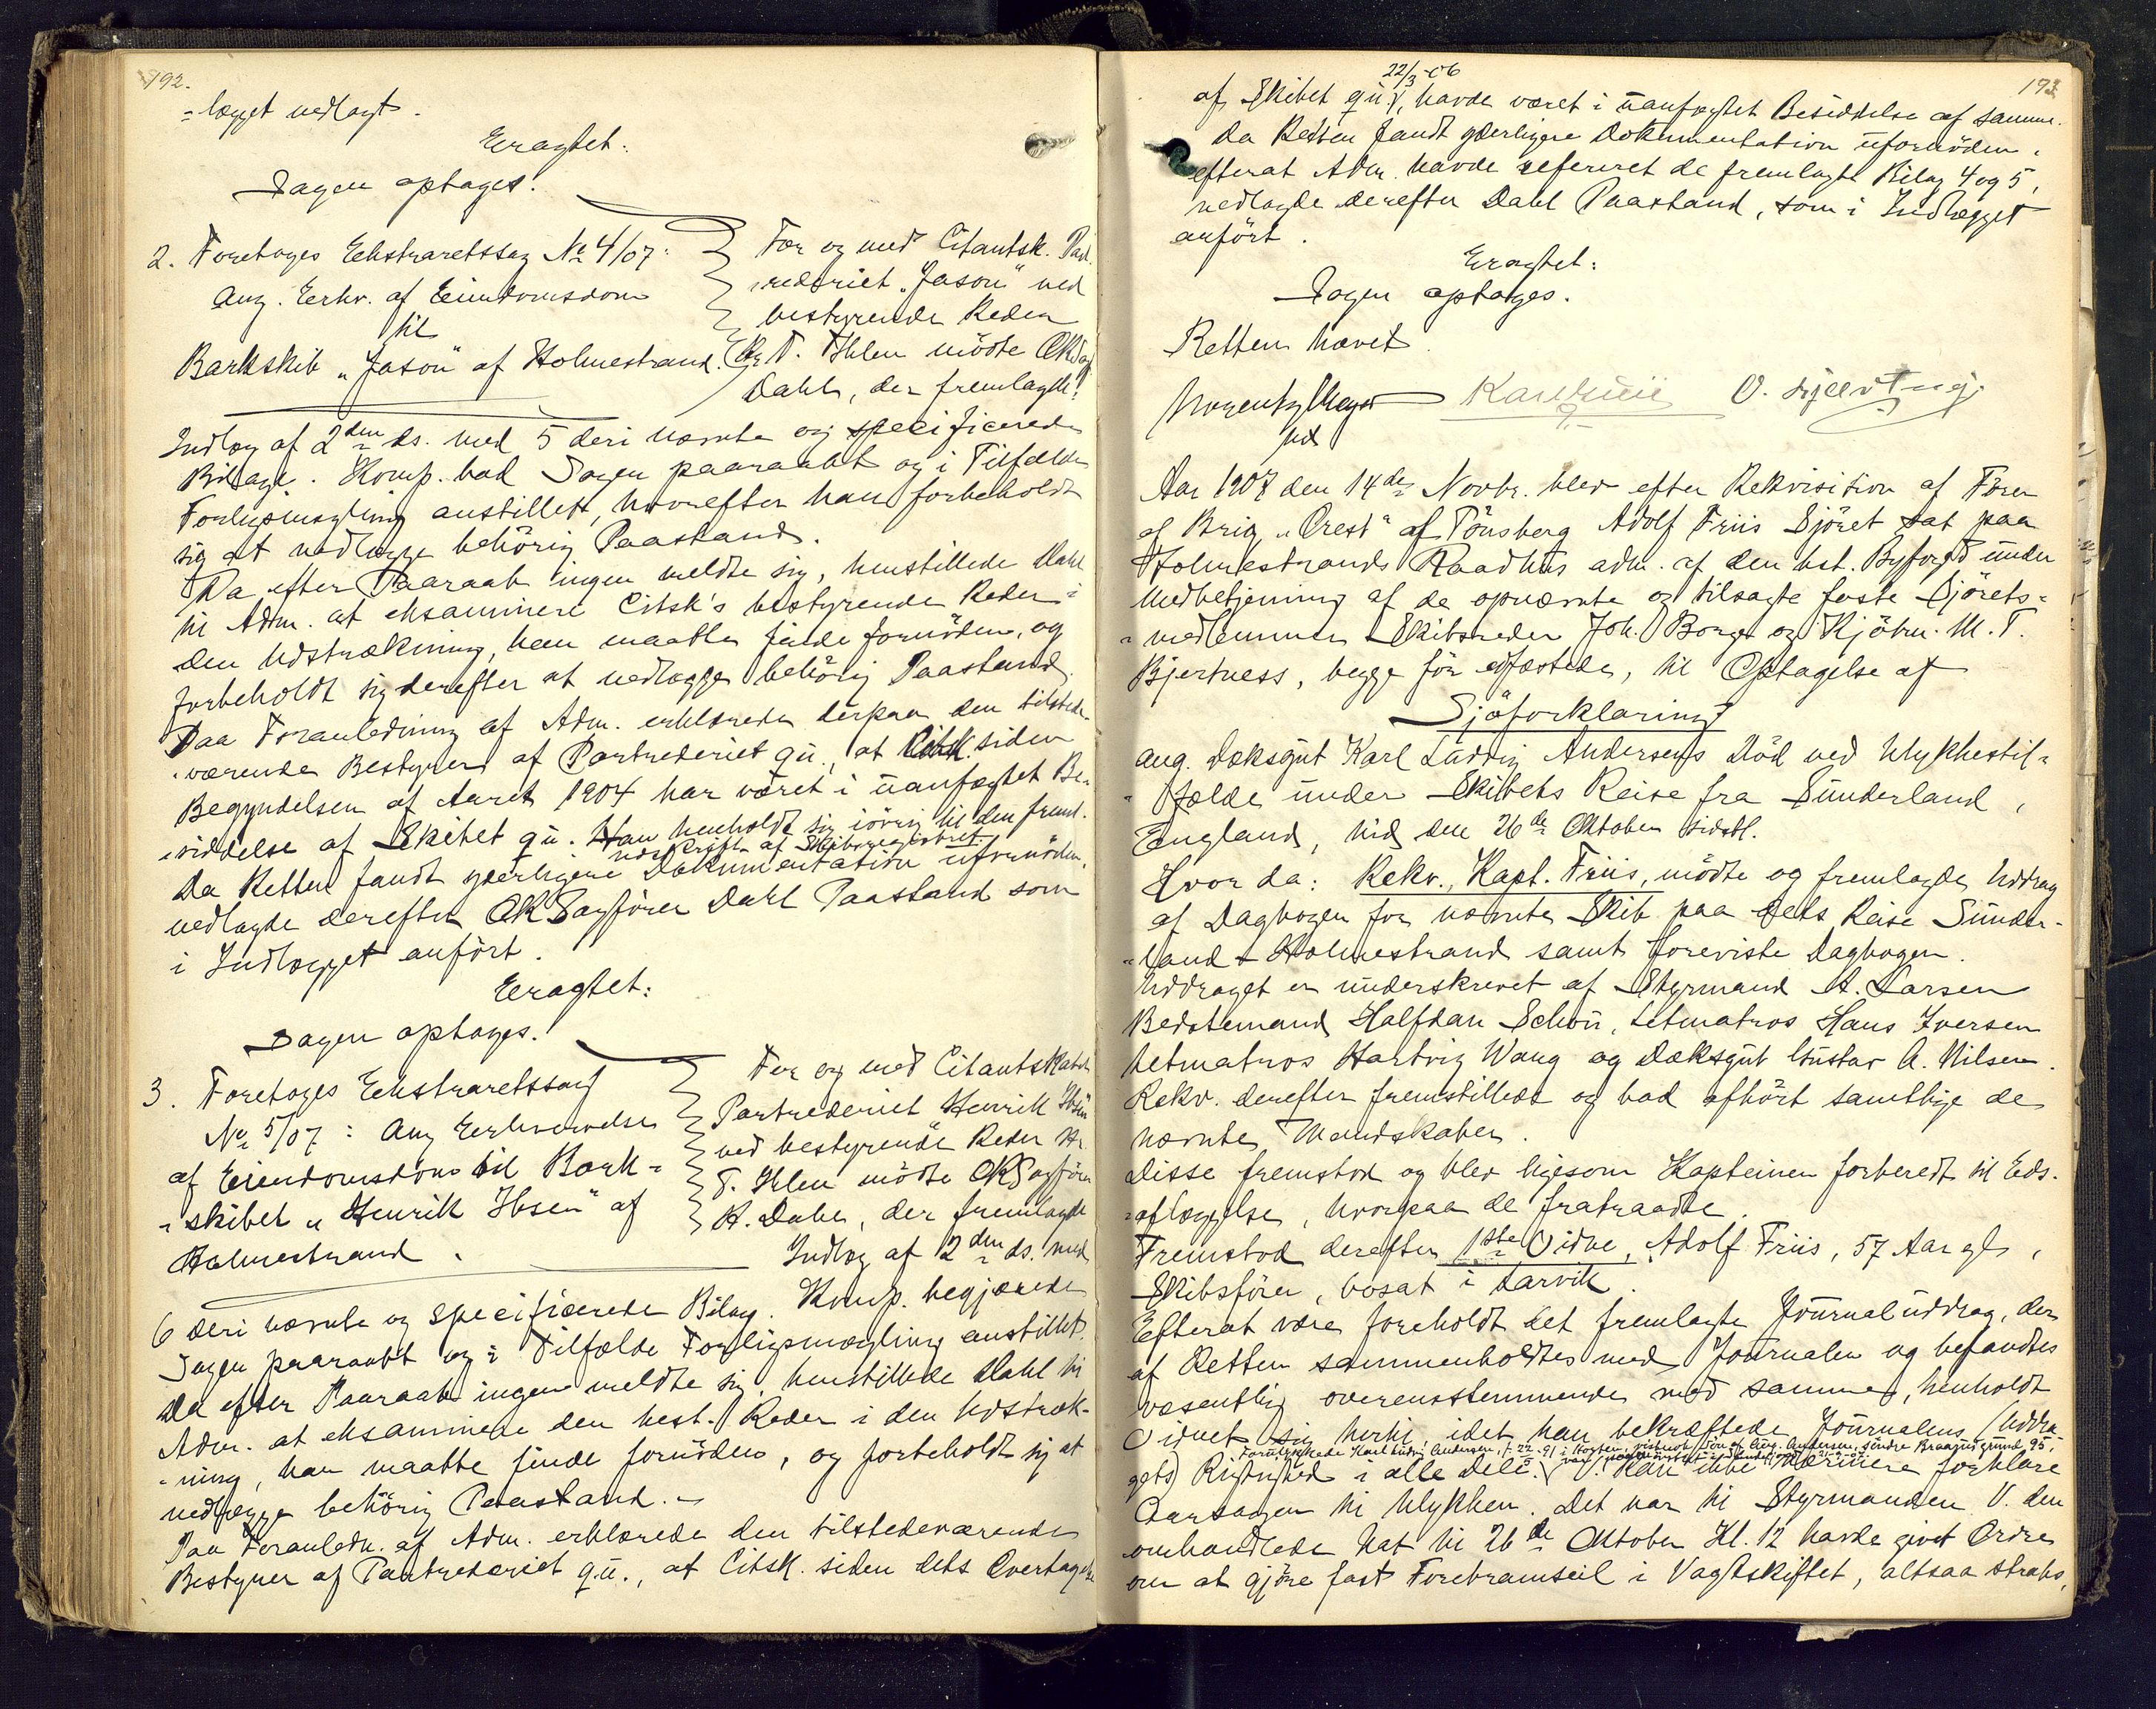 192.
=lægget nedlagt.
Eragtet:
Sagen optages.
2. Foretoges Ekstraretssag No 4/07:
ang. Eerhv. af Eiendomsdom
til
Barkskib "Jason" af Holmestrand.
For og med Citantsk. Part
rederiet "Jason" ved
bestyrende Reder
Hr. T. Ihlen mödte OKSagf
Dahl, der fremlagde:
Indlæg af 2den ds. med 5 deri nævnte og specificerede
Bilage. Komp. bad Sagen paaraabt og i Tilfælde
Forligsmægling anstillet, hvorefter han forbeholdt
sig at nedlægge behörig Paastand.
Da efter Paaraab ingen meldte sig, henstillede Dahl
til Adm. at eksaminere Citsk's bestyrende Reder i
den Udstrækning, han maatte finde fornöden, og
forbeholdt sig derefter at nedlægge behörig Paastand.
Paa Foranledning af Adm. erklærede derpaa den tilstede-
-værende Bestyrer af Partrederiet qu., at Citsk. siden
Begyndelsen af Aaret 1904 har været i uanfægtet Be-
-siddelse af Skibet qu. Han henholdt sig iövrig til den freml.
udskrift af Skibsregistret.
Da Retten fandt yderligere Dokumentation ufornöden,
nedlagde derefter OKSagförer Dahl Paastand som
i Indlægget anfört.
Eragtet:
Sagen optages.
3. Foretoges Ekstraretssag
No 5/07: Ang Eerhvervelse
af Eiendomsdom til Bark=
=skibet "Henrik Ibsen" af
Holmestrand.
For og med Citantskabet
Partrederiet Henrik Ibsen
ved bestyrende Reder Hr
T. Ihlen mödte OKSagförer
H. Dahl, der fremlagde
Indlæg af 2den ds. med
6 deri nævnte og specificerede Bilag. Komp. begjærede
Sagen paaraabt og i Tilfælde Forligsmægling anstillet.
Da efter Paaraab ingen meldte sig, henstillede Dahl til
Adm. at eksaminere den best. Reder i den Udstræk-
-ning, han maatte finde fornöden, og forbeholdt sig at
nedlægge behörig Paastand.
Paa Foranledn. af Adm. erklærede den tilstedeværende
Bestyrer af Partrederiet qu., at Citsk. siden dets Overtagelse
193
22/3-06
af Skibet qu., havde været i uanfægtet Besiddelse af samme.
Da Retten fandt yderligere Dokumentation ufornöden,
efterat Adm. havde refereret de fremlagte Bilag 4 og 5,
nedlagde derefter Dahl Paastand, som i Indlægget
anfört.
Eragtet:
Sagen optages.
Retten hævet
Aar 1907 den 14de Novbr. blev efter Rekvisition af Förer
af Brig "Orest" af Tönsberg Adolf Friis Sjöret sat paa
Holmestrands Raadhus adm. af den kst. Byfogd under
Medbetjening af de opnævnte og tilsagte faste Sjörets=
=medlemmer Skibsreder Joh. Borge og Kjöbm. M. T.
Bjertness, begge för edfæstede, til Optagelse af
Sjöforklaring
ang. Dæksgut Karl Ludvig Andersens Död ved Ulykkestil=
=fælde under Skibets Reise fra Sunderland,
England, hid den 26de Oktober sidstl.
Hvor da: Rekv., Kapt. Friis, mödte og fremlagde Uddrag
af Dagbogen for nævnte Skib paa dets Reise Sunder-
-land - Holmestrand samt foreviste Dagbogen.
Uddraget er underskrevet af Styrmand A. Larsen
Bedstemand Halfdan Schou, Letmatros Hans Iversen
Letmatros Hartvig Wang og Dæksgut Gustav A. Nilsen.
Rekv. derefter fremstilledes og bad afhört samtlige de
nævnte Mandskaber.
Disse fremstod og blev ligesom Kapteinen forberedt til Eds-
=aflæggelse, hvorpaa de fratraadte.
Fremstod derefter 1ste Vidne, Adolf Friis, 57 Aar gl.,
Skibsförer, bosat i Larvik.
Efterat være foreholdt det fremlagte Journaluddrag, der
af Retten sammenholdtes med Journalen og befandtes
væsentlig overensstemmende med samme, henholdt
Vidnet sig hertil, idet han bekræftede Journalens (Uddra-
Forulykkede Karl Ludvig Andersen, f. 22-91 i Horten, Sön af Aug. Andersen, söndre Braarudgrund 95,
gets) Rigtighed i alle Dele. V. kan ikke nærmere forklare
Aarsagen til Ulykken. Det var til Styrmanden V. den
omhandlede Nat til 26de Oktober Kl. 12 havde givet Ordre
om at gjöre fast Forebramseil i Vagtskiftet, altsaa straks,